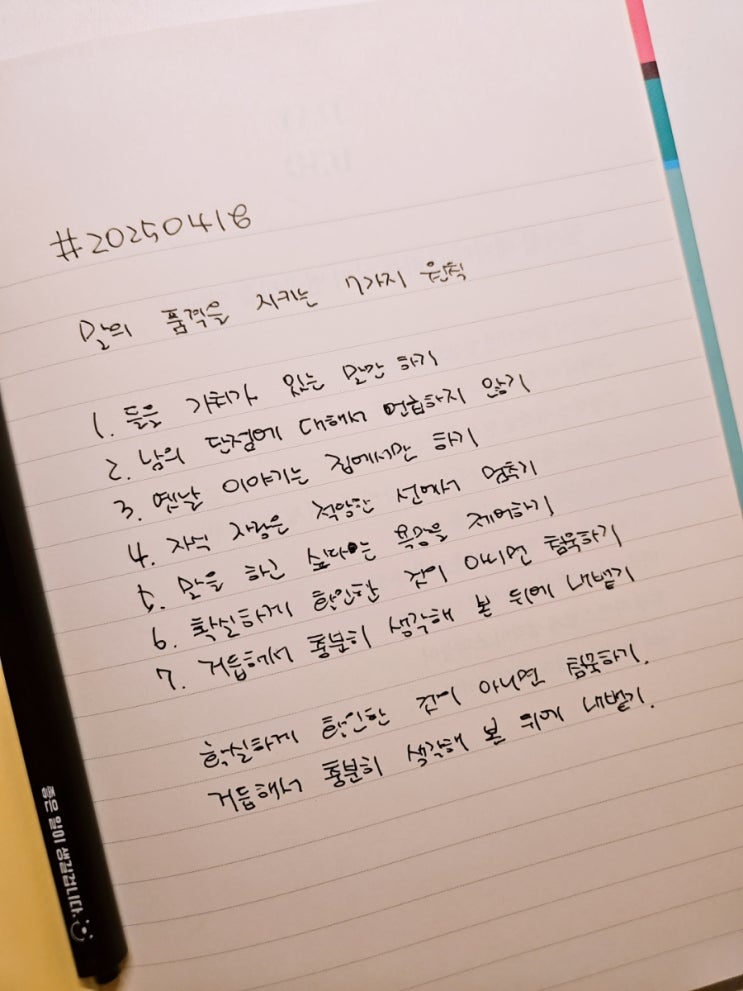 #20250418
말의 품격을 지키는 7가지 원칙
1. 들을 가치가 있는 말만 하기
2. 남의 단점에 대해서 언급하지 않기
3. 옛날 이야기는 집에서만 하기
4. 자식 자랑은 적당한 선에서 멈추기
5. 말을 하고 싶다는 욕망을 제어하기
6. 확실하게 확인한 것이 아니면 침묵하기
7. 거듭해서 충분히 생각해 본 뒤에 내뱉기
확실하게 확인한 것이 아니면 침묵하기.
거듭해서 충분히 생각해 본 뒤에 내뱉기.
좋은 일이 생길겁니다.